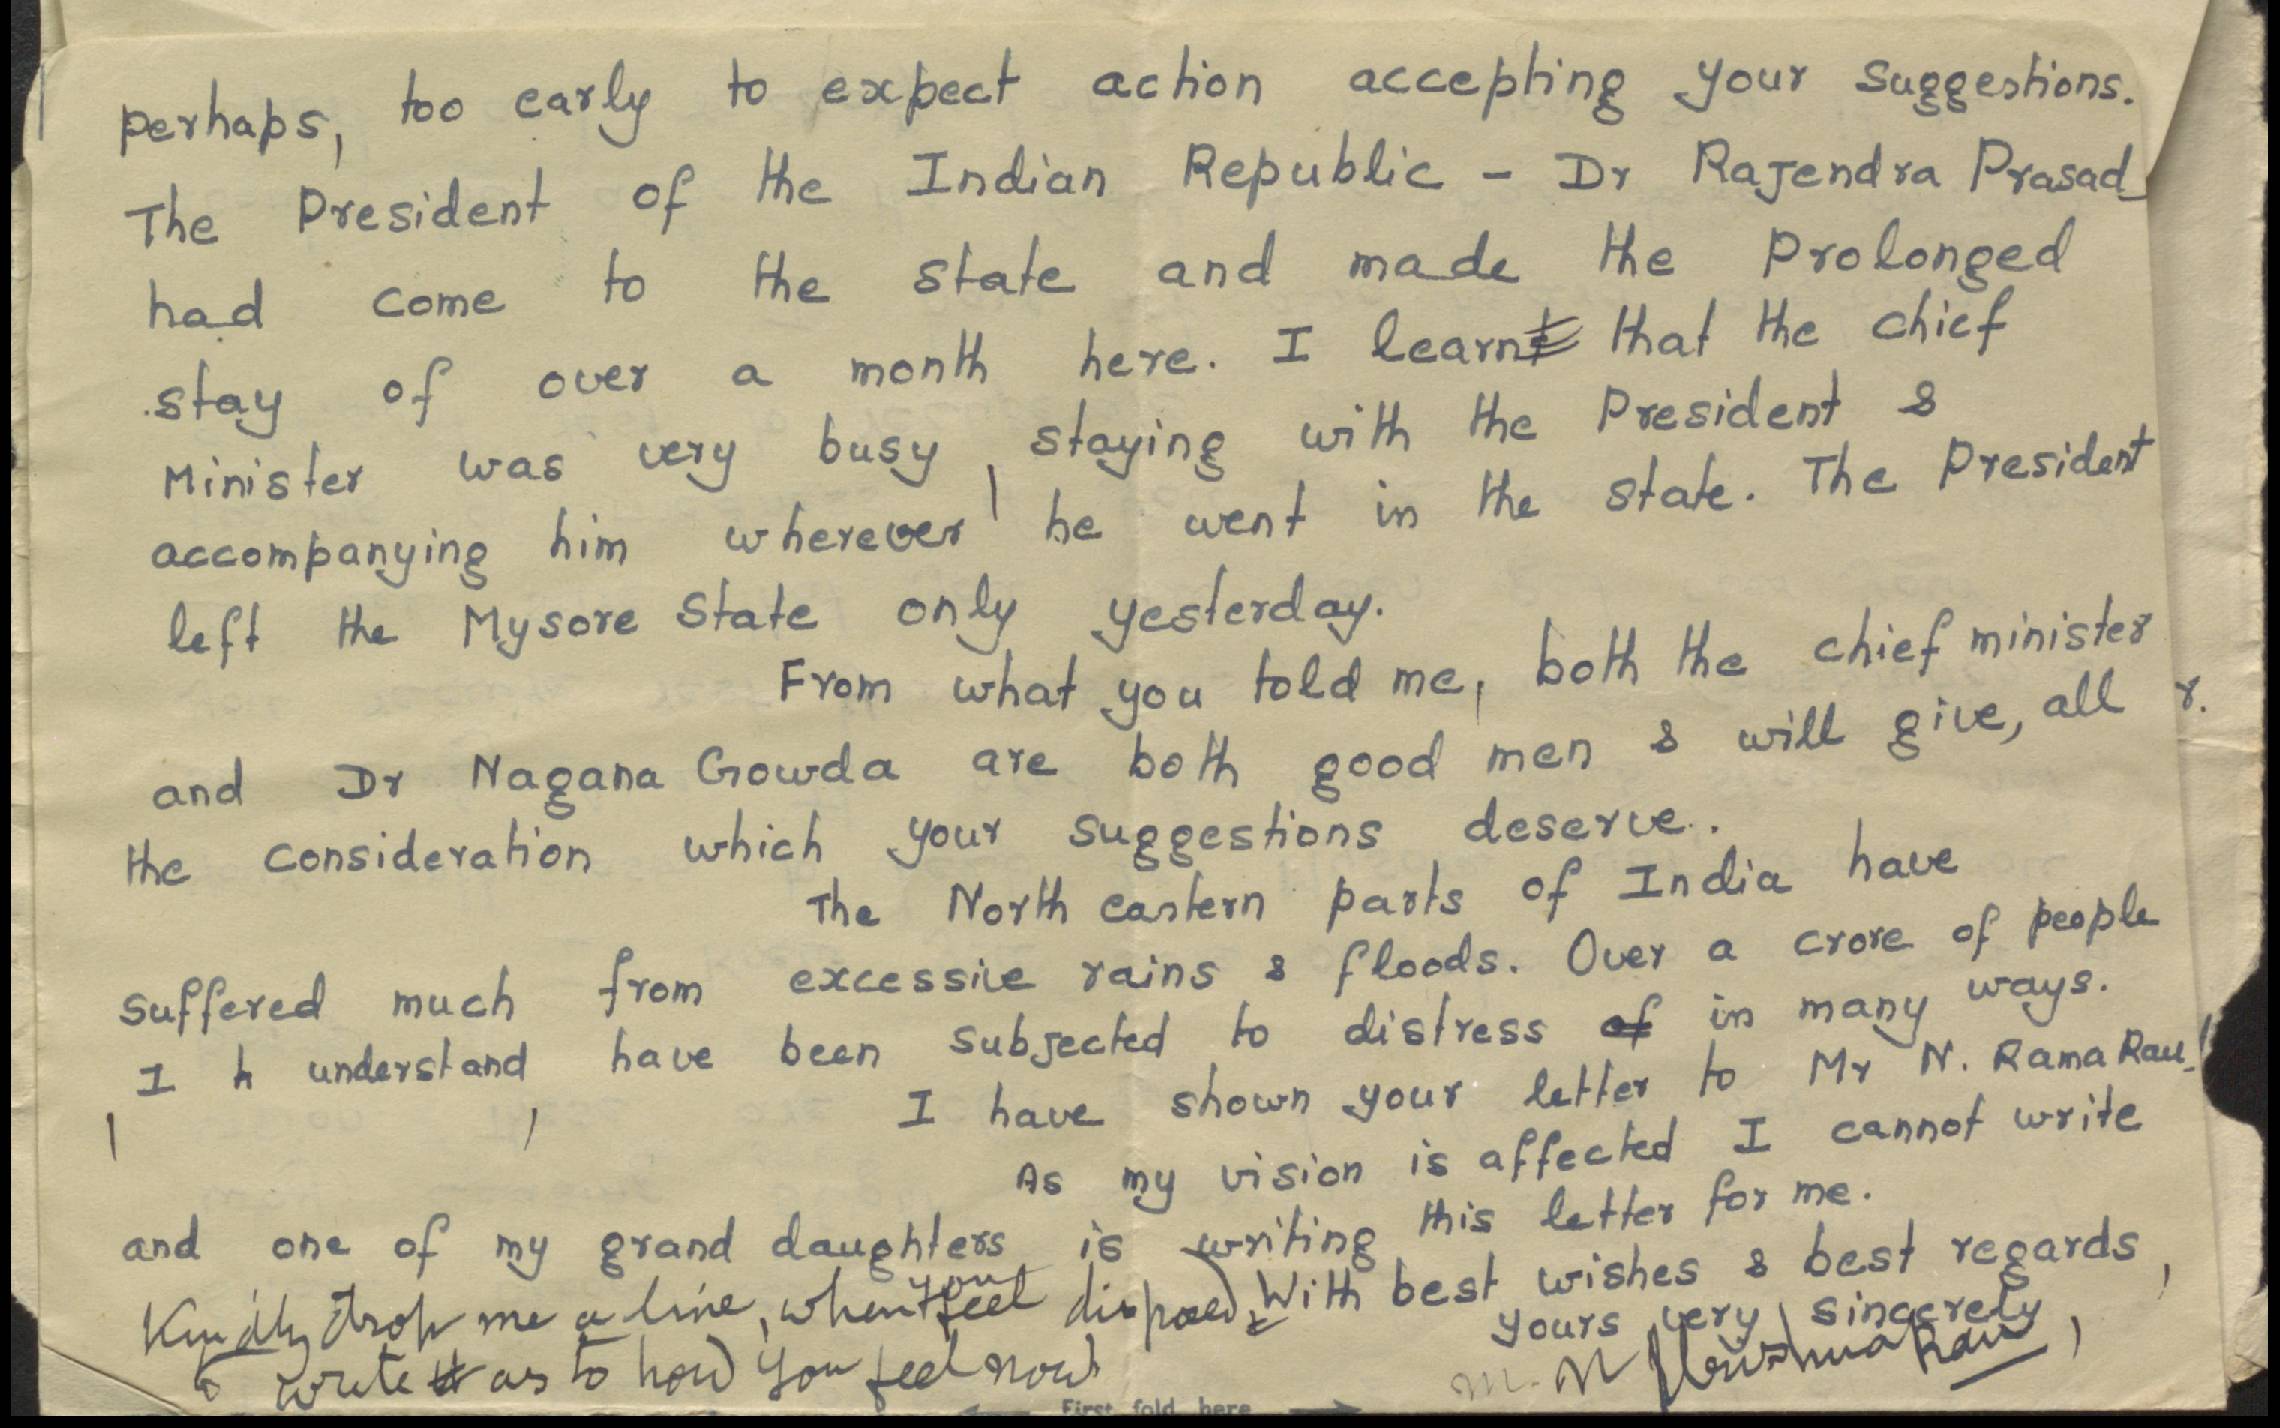 perhaps, too early to expect action accepting your suggestions.
The President of the Indian Republic - Dr Rajendra Prasad
had come to the state and made the Prolonged
stay of over a month here. I learnt that the chief
Minister was very busy, staying with the President &
accompanying him wherever he went in the state. The President
left the Mysore State only yesterday.
From what you told me, both the chief minister
and Dr Nagana Gowda are both good men & will give, all r.
the consideration which your suggestions deserve.
The North eastern parts of India have
suffered much from excessive rains & floods. Over a crore of people
I h understand, have been subjected to distress of in many ways.
I have shown your letter to Mr N. Rama Rau.
As my vision is affected I cannot write
and one of my grand daughters is writing this letter for me.
With best wishes & best regards,
Kindly drop me a line, when you feel disposed &
yours very sincerely,
write as to how you feel now
M. N Krishna Rau
First fold here